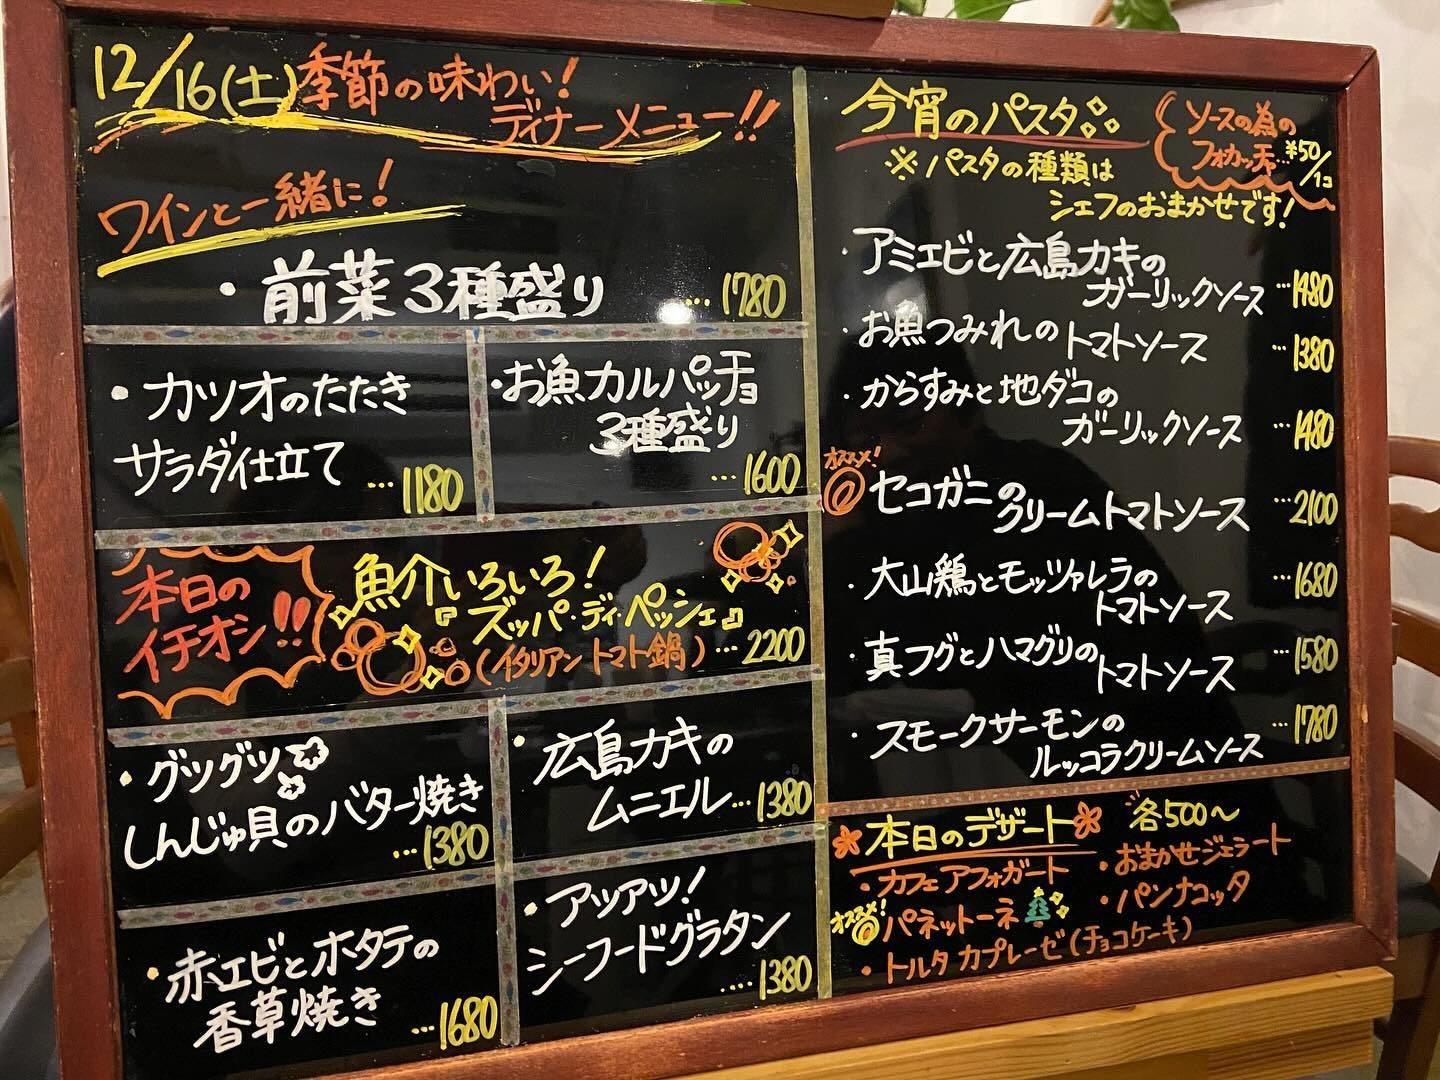 12/16(土)季節の味わい!
ディナーメニュー!!
ワインと一緒に!
・前菜3種盛り …1780
・カツオのたたき
サラダ仕立て …1180
・お魚カルパッチョ
3種盛り …1600
本日の
イチオシ!!
魚介いろいろ!
『ズッパ・ディ・ペッシェ』
(イタリアントマト鍋) …2200
・グツグツ
しんじゅ貝のバター焼き
…1380
・広島カキの
ムニエル…1380
・赤エビとホタテの
香草焼き …1680
・アツアツ!
シーフードグラタン
…1380
今宵のパスタ
※パスタの種類は
シェフのおまかせです!
ソースの為の
フォカッチャ…¥50/1コ
・アミエビと広島カキの
ガーリックソース …1480
・お魚つみれのトマトソース …1380
・からすみと地ダコの
ガーリックソース …1480
オススメ!
セコガニの
クリームトマトソース …2100
・大山鶏とモッツァレラの
トマトソース …1680
・真フグとハマグリの
トマトソース …1580
・スモークサーモンの
ルッコラクリームソース …1780
本日のデザート 各500〜
・カフェアフォガート
オススメ!
パネットーネ
・トルタカプレーゼ(チョコケーキ)
・おまかせジェラート
・パンナコッタ